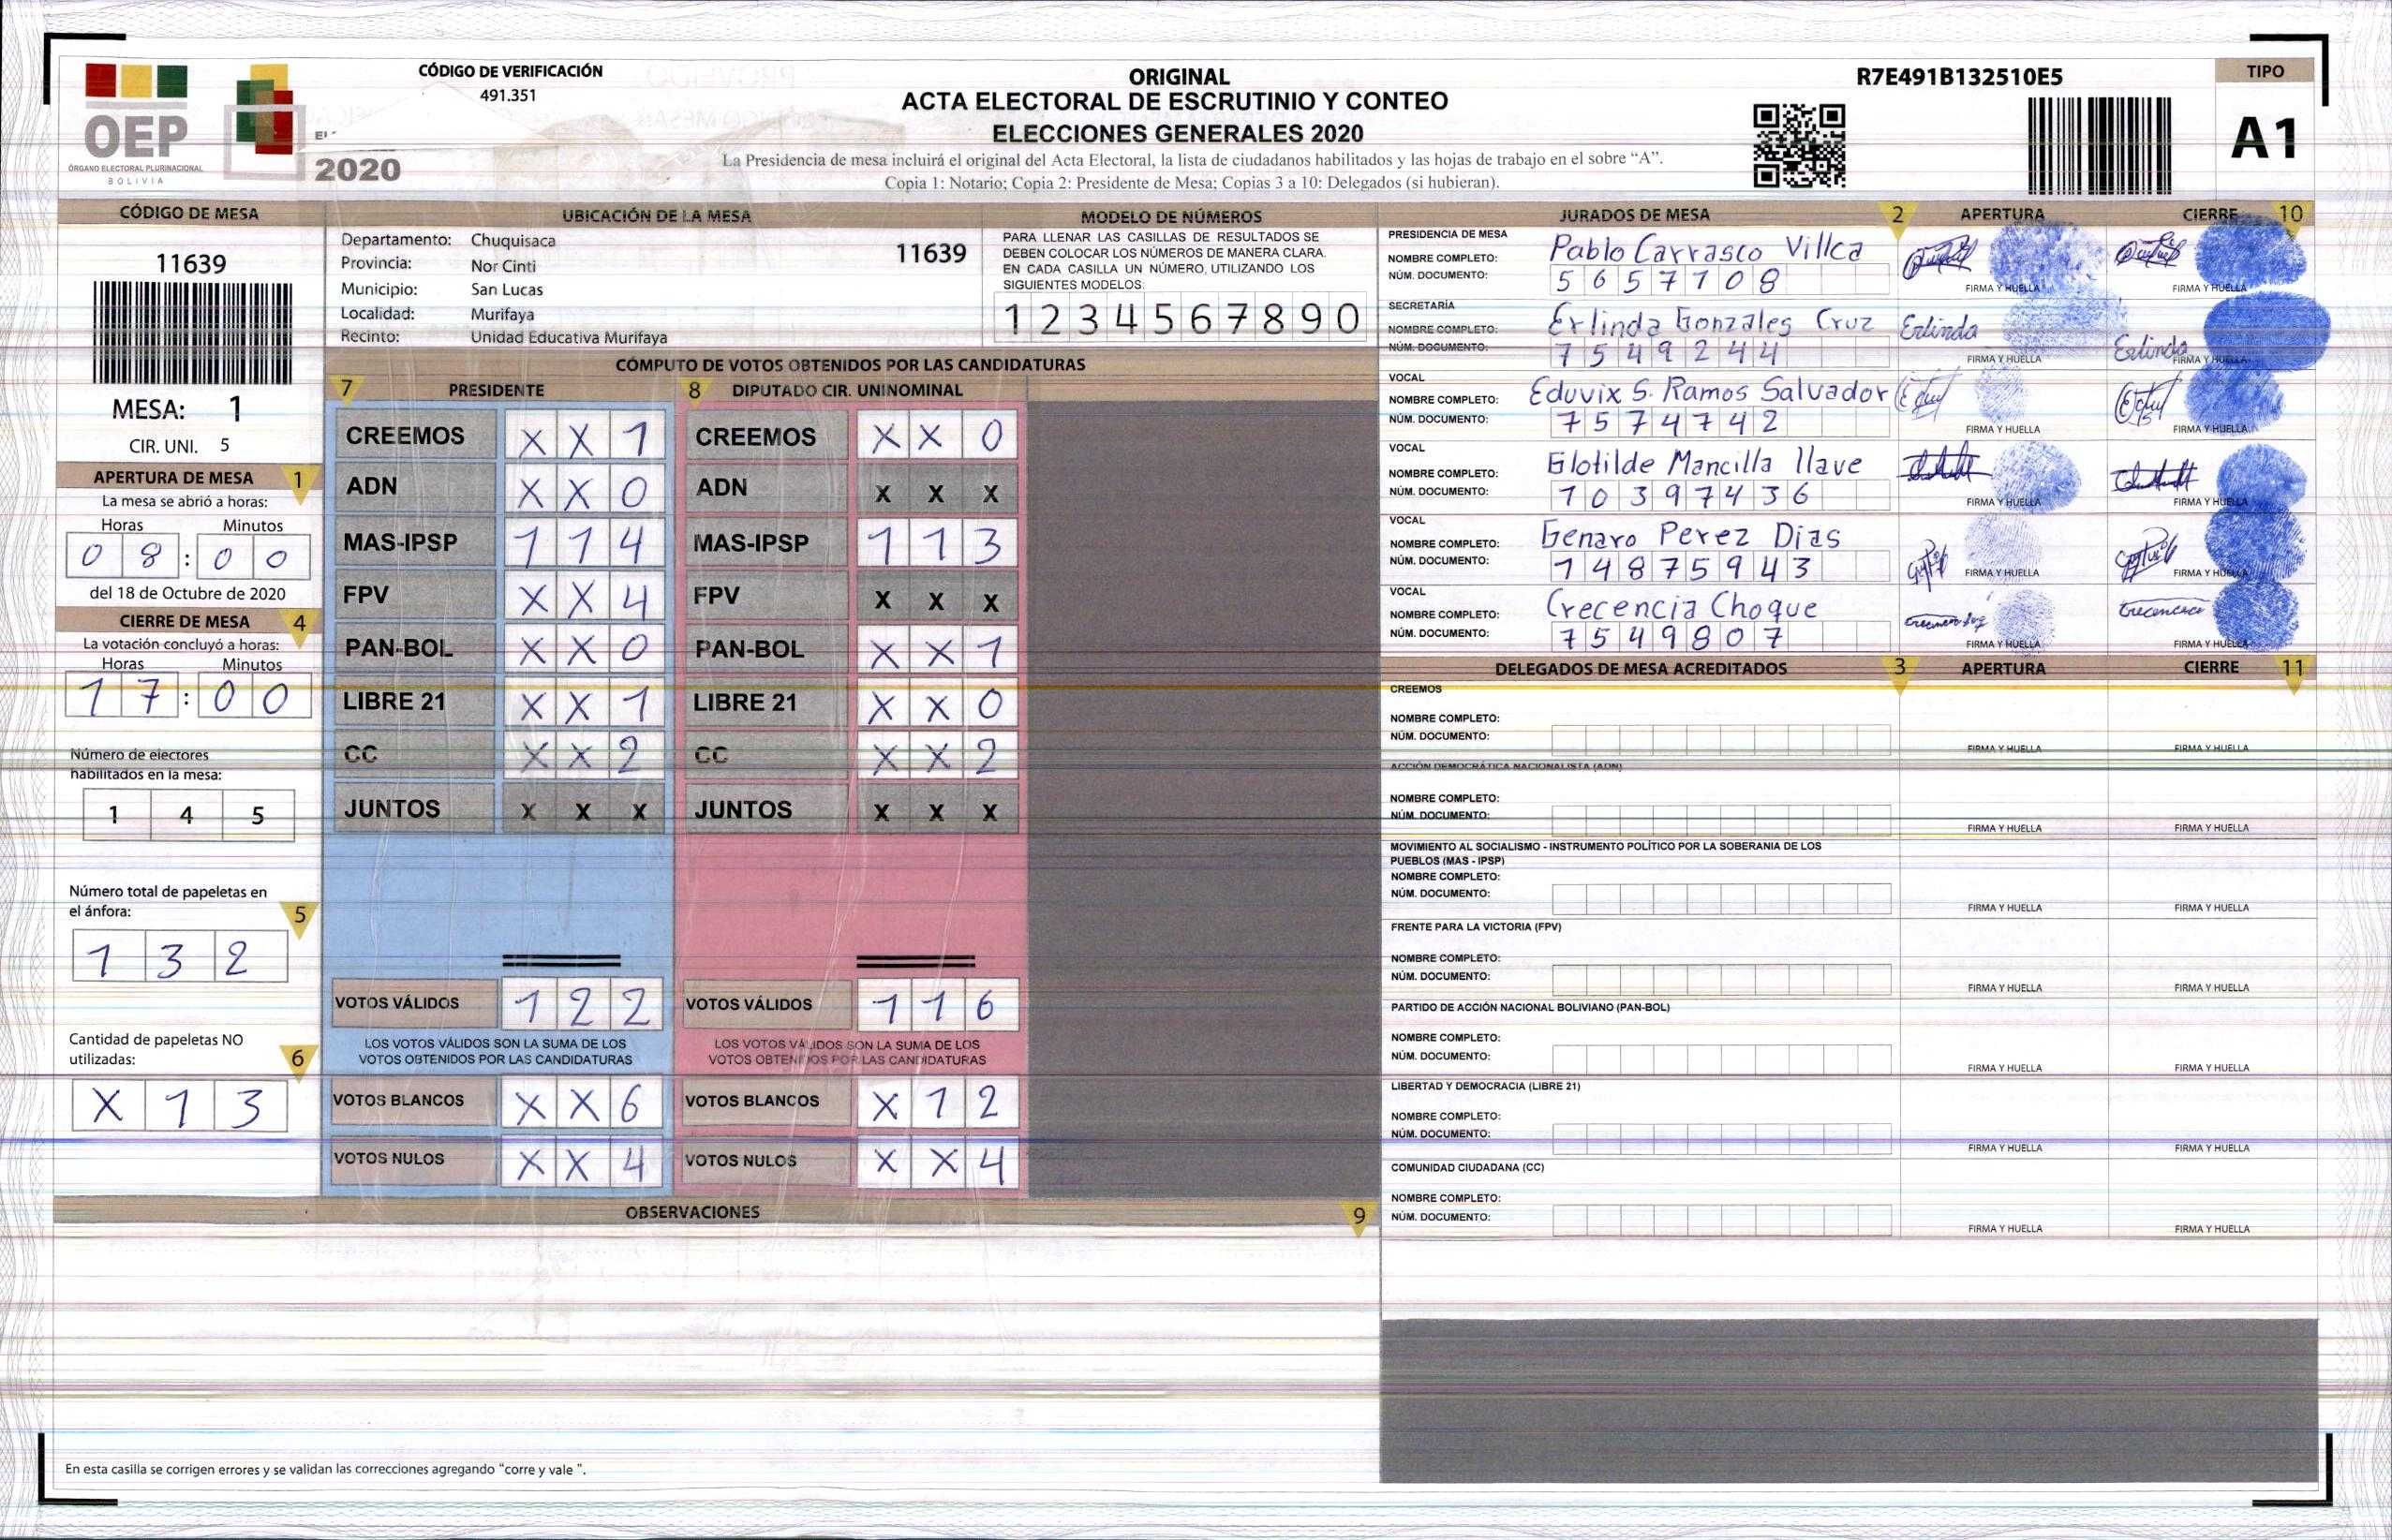 OEP
ÓRGANO ELECTORAL PLURINACIONAL
BOLIVIA
2020
CÓDIGO DE VERIFICACIÓN
491.351
ORIGINAL
ACTA ELECTORAL DE ESCRUTINIO Y CONTEO
ELECCIONES GENERALES 2020
La Presidencia de mesa incluirá el original del Acta Electoral, la lista de ciudadanos habilitados y las hojas de trabajo en el sobre “A”.
Copia 1: Notario; Copia 2: Presidente de Mesa; Copias 3 a 10: Delegados (si hubieran).
R7E491B132510E5
TIPO
A1
CÓDIGO DE MESA
11639
MESA: 1
CIR. UNI. 5
APERTURA DE MESA 1
La mesa se abrió a horas:
Horas Minutos
0 8 : 0 0
del 18 de Octubre de 2020
CIERRE DE MESA 4
La votación concluyó a horas:
Horas Minutos
1 7 : 0 0
Número de electores
habilitados en la mesa:
1 4 5
Número total de papeletas en
el ánfora: 5
1 3 2
Cantidad de papeletas NO
utilizadas: 6
X 1 3
UBICACIÓN DE LA MESA
Departamento: Chuquisaca 11639
Provincia: Nor Cinti
Municipio: San Lucas
Localidad: Murifaya
Recinto: Unidad Educativa Murifaya
MODELO DE NÚMEROS
PARA LLENAR LAS CASILLAS DE RESULTADOS SE
DEBEN COLOCAR LOS NÚMEROS DE MANERA CLARA.
EN CADA CASILLA UN NÚMERO, UTILIZANDO LOS
SIGUIENTES MODELOS:
1 2 3 4 5 6 7 8 9 0
CÓMPUTO DE VOTOS OBTENIDOS POR LAS CANDIDATURAS
7 PRESIDENTE 8 DIPUTADO CIR. UNINOMINAL
CREEMOS X X 1 CREEMOS X X 0
ADN X X 0 ADN X X X
MAS-IPSP 1 1 4 MAS-IPSP 1 1 3
FPV X X 4 FPV X X X
PAN-BOL X X 0 PAN-BOL X X 1
LIBRE 21 X X 1 LIBRE 21 X X 0
CC X X 2 CC X X 2
JUNTOS X X X JUNTOS X X X
VOTOS VÁLIDOS 1 2 2 VOTOS VÁLIDOS 1 1 6
LOS VOTOS VÁLIDOS SON LA SUMA DE LOS LOS VOTOS VÁLIDOS SON LA SUMA DE LOS
VOTOS OBTENIDOS POR LAS CANDIDATURAS VOTOS OBTENIDOS POR LAS CANDIDATURAS
VOTOS BLANCOS X X 6 VOTOS BLANCOS X 1 2
VOTOS NULOS X X 4 VOTOS NULOS X X 4
OBSERVACIONES 9
En esta casilla se corrigen errores y se validan las correcciones agregando “corre y vale ”.
JURADOS DE MESA 2 APERTURA CIERRE 10
PRESIDENCIA DE MESA
NOMBRE COMPLETO: Pablo Carrasco Villca
NÚM. DOCUMENTO: 5 6 5 7 1 0 8
FIRMA Y HUELLA FIRMA Y HUELLA
SECRETARÍA
NOMBRE COMPLETO: Erlinda Gonzales Cruz Erlinda Erlinda
NÚM. DOCUMENTO: 7 5 4 9 2 4 4
FIRMA Y HUELLA FIRMA Y HUELLA
VOCAL
NOMBRE COMPLETO: Eduvix S. Ramos Salvador
NÚM. DOCUMENTO: 7 5 7 4 7 4 2
FIRMA Y HUELLA FIRMA Y HUELLA
VOCAL
NOMBRE COMPLETO: Glotilde Mancilla llave
NÚM. DOCUMENTO: 1 0 3 9 7 4 3 6
FIRMA Y HUELLA FIRMA Y HUELLA
VOCAL
NOMBRE COMPLETO: Genaro Perez Dias
NÚM. DOCUMENTO: 1 4 8 7 5 9 4 3
FIRMA Y HUELLA FIRMA Y HUELLA
VOCAL
NOMBRE COMPLETO: Crecencia Choque
NÚM. DOCUMENTO: 7 5 4 9 8 0 7
FIRMA Y HUELLA FIRMA Y HUELLA
DELEGADOS DE MESA ACREDITADOS 3 APERTURA CIERRE 11
CREEMOS
NOMBRE COMPLETO:
NÚM. DOCUMENTO:
FIRMA Y HUELLA FIRMA Y HUELLA
ACCIÓN DEMOCRÁTICA NACIONALISTA (ADN)
NOMBRE COMPLETO:
NÚM. DOCUMENTO:
FIRMA Y HUELLA FIRMA Y HUELLA
MOVIMIENTO AL SOCIALISMO - INSTRUMENTO POLÍTICO POR LA SOBERANIA DE LOS
PUEBLOS (MAS - IPSP)
NOMBRE COMPLETO:
NÚM. DOCUMENTO:
FIRMA Y HUELLA FIRMA Y HUELLA
FRENTE PARA LA VICTORIA (FPV)
NOMBRE COMPLETO:
NÚM. DOCUMENTO:
FIRMA Y HUELLA FIRMA Y HUELLA
PARTIDO DE ACCIÓN NACIONAL BOLIVIANO (PAN-BOL)
NOMBRE COMPLETO:
NÚM. DOCUMENTO:
FIRMA Y HUELLA FIRMA Y HUELLA
LIBERTAD Y DEMOCRACIA (LIBRE 21)
NOMBRE COMPLETO:
NÚM. DOCUMENTO:
FIRMA Y HUELLA FIRMA Y HUELLA
COMUNIDAD CIUDADANA (CC)
NOMBRE COMPLETO:
NÚM. DOCUMENTO:
FIRMA Y HUELLA FIRMA Y HUELLA